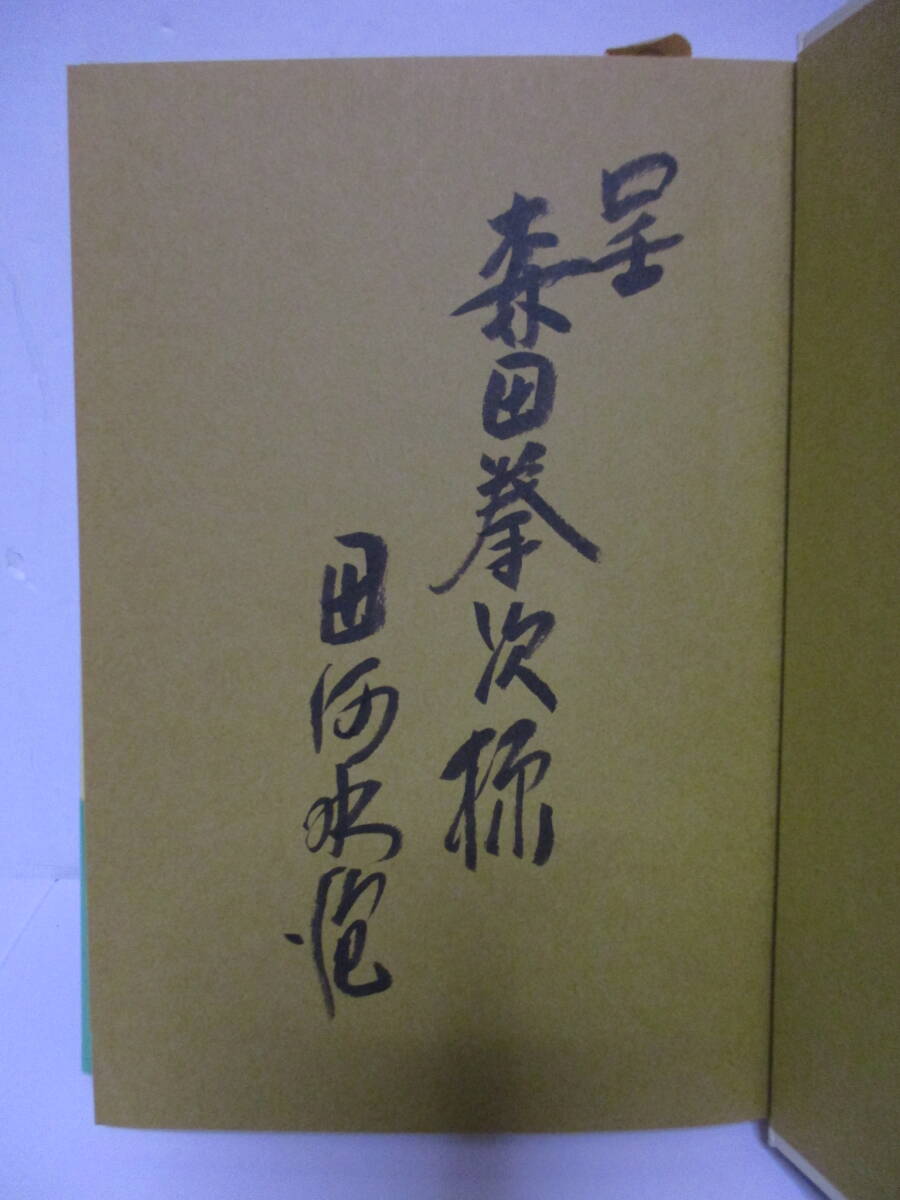 呈
森田拳次様
田河水泡